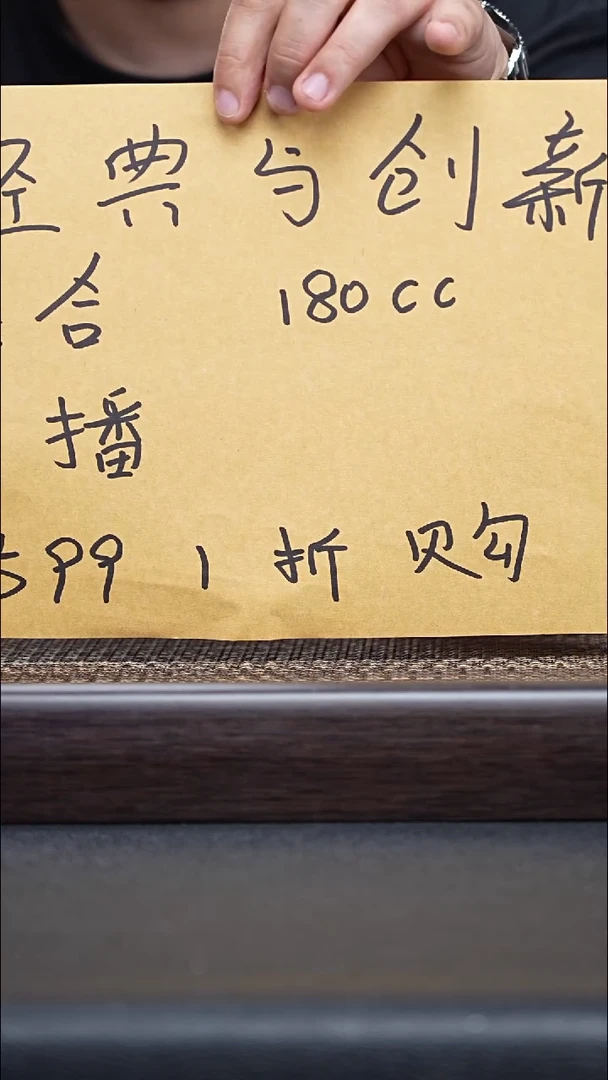 经典与创新
合 180cc
播
599 1折购